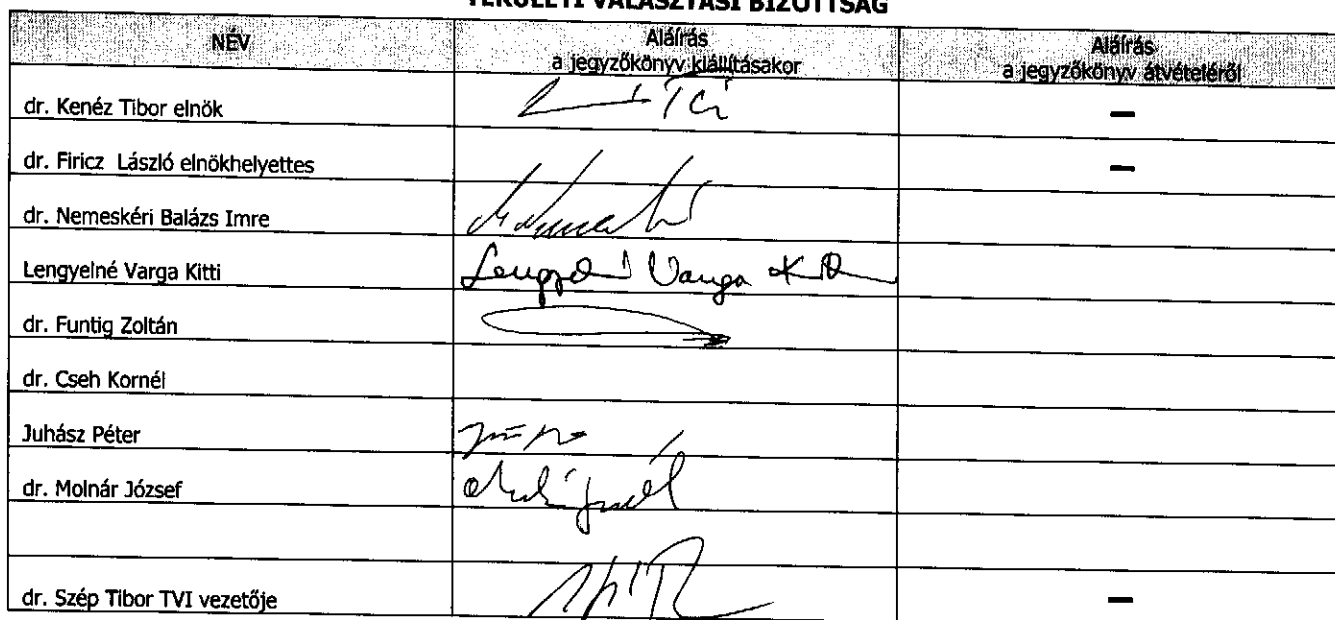 TERÜLETI VÁLASZTÁSI BIZOTTSÁG
NÉV
Aláírás
a jegyzőkönyv kiállításakor
Aláírás
a jegyzőkönyv átvételéről
dr. Kenéz Tibor elnök
–
dr. Firicz László elnökhelyettes
–
dr. Nemeskéri Balázs Imre
Lengyelné Varga Kitti
Lengyelné Varga Kitti
dr. Funtig Zoltán
dr. Cseh Kornél
Juhász Péter
dr. Molnár József
dr. Szép Tibor TVI vezetője
–